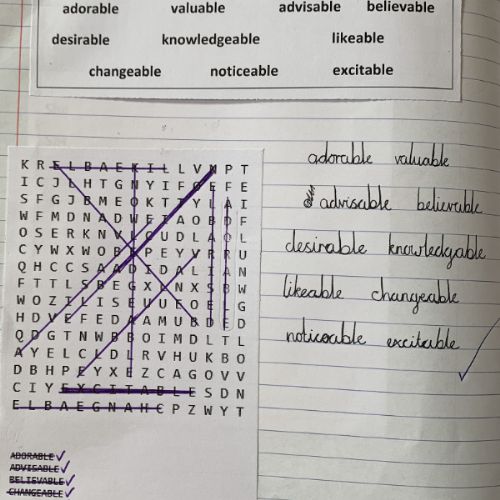 adorable valuable advisable believable
desirable knowledgeable likeable
changeable noticeable excitable
K R E L B A E K I L L V N P T
I C J L H T G N Y I F O E F E
S F G J B M E O K T T Y L A I
W F M D N A D W E I A O B D F
O S E R K N V L C U D L A O L
C Y W X W O B E P E Y V R R U
Q H C C S A A D I D A L I A N
F T T L S B E G X I N X S B W
W O Z I L I S E U U E O E L G
H D V E F E D A A M U B D E D
Q D G T N W B B O I M D L T L
A Y E L C L D L R V H U K B O
D B H P E Y X E Z C A G O V V
C I Y E X C I T A B L E S D N
E L B A E G N A H C P Z W Y T
ADORABLE
ADVISABLE
BELIEVABLE
CHANGEABLE
adorable valuable
advisable believable
desirable knowledgable
likeable changeable
noticeable excitable